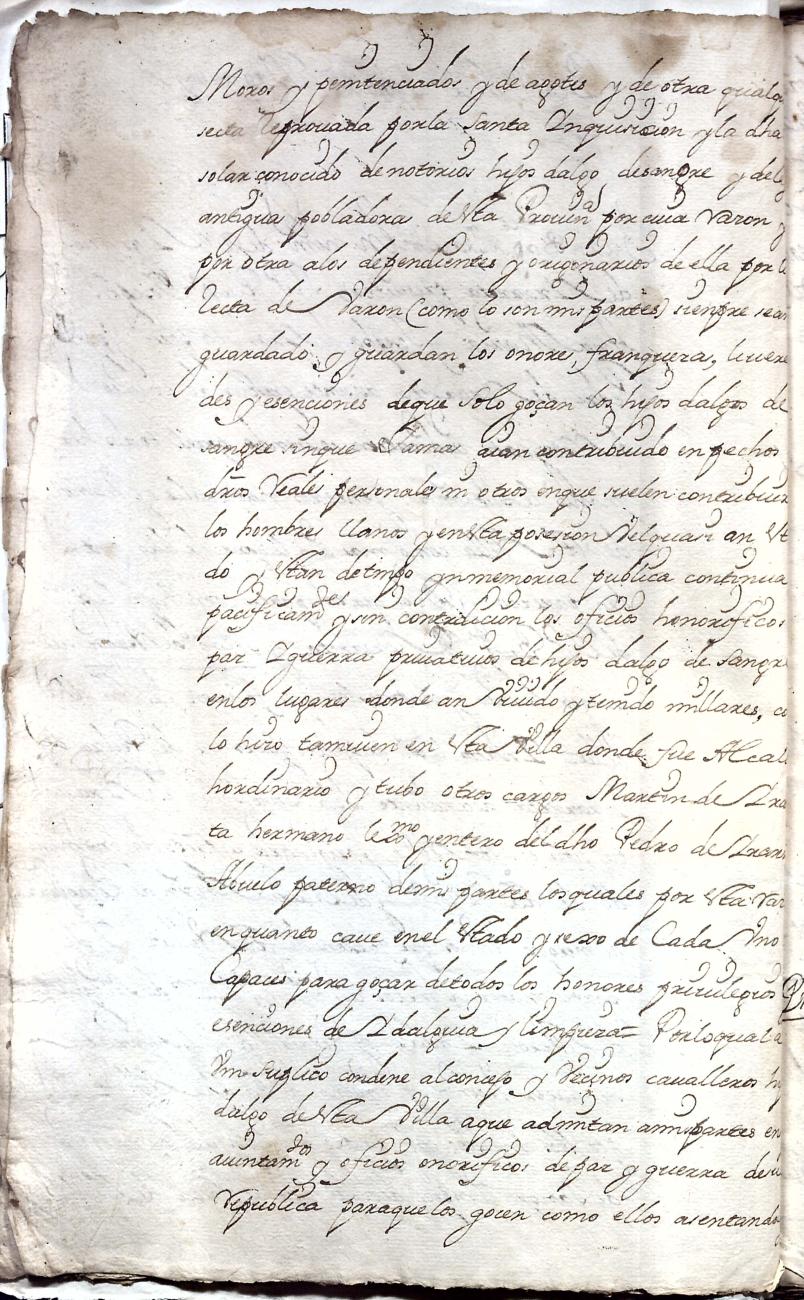 Moros y penitenciados y de agotes y de otra qualq
secta Reprouada por la Santa Inquisicion y la dha
solar conocido de notorios hijos dalgo de sangre y de la
antigua pobladora de esta Prouinª por cuia Varon y
por otra a los dependientes y originarios de ella por l
Recta de Varon (como lo son mis partes) siempre sean
guardado y guardan los onores, franqueças, liuerta
des y esenciones de que solo goçan los hijos dalgos de
sangre sin que Jamas aian contribuido en pechos
dros Reales personales ni otros en que suelen contribuir
los hombres llanos y en esta posesion vel quasi an est
do y estan de tmpo ynmemorial publica continua
pacificamtes y sin contradicion los oficios honorificos
paz I guerra priuatiuos de hijos dalgo de sangre
en los lugares donde an Viuido y tenido millares, co
lo hiço tamuien en esta Villa donde fue Alcal
hordinario y tubo otros cargos Martin de Ira
ta hermano lexmo y entero del dho Pedro de Iran
Abuelo paterno de mis partes los quales por esta raz
en quanto caue en el estado y sexso de Cada Vno
Capaces para goçar de todos los honores priuilegios
esenciones de Idalguia y limpieza= Por lo qual a
Vm suplico condene al concejo y Vecinos caualleros hi
dalgo de esta Villa a que admitan a mis partes en
aiuntamdos y oficios onorificos de paz y guerra de su
Republica para que los gocen como ellos asentando